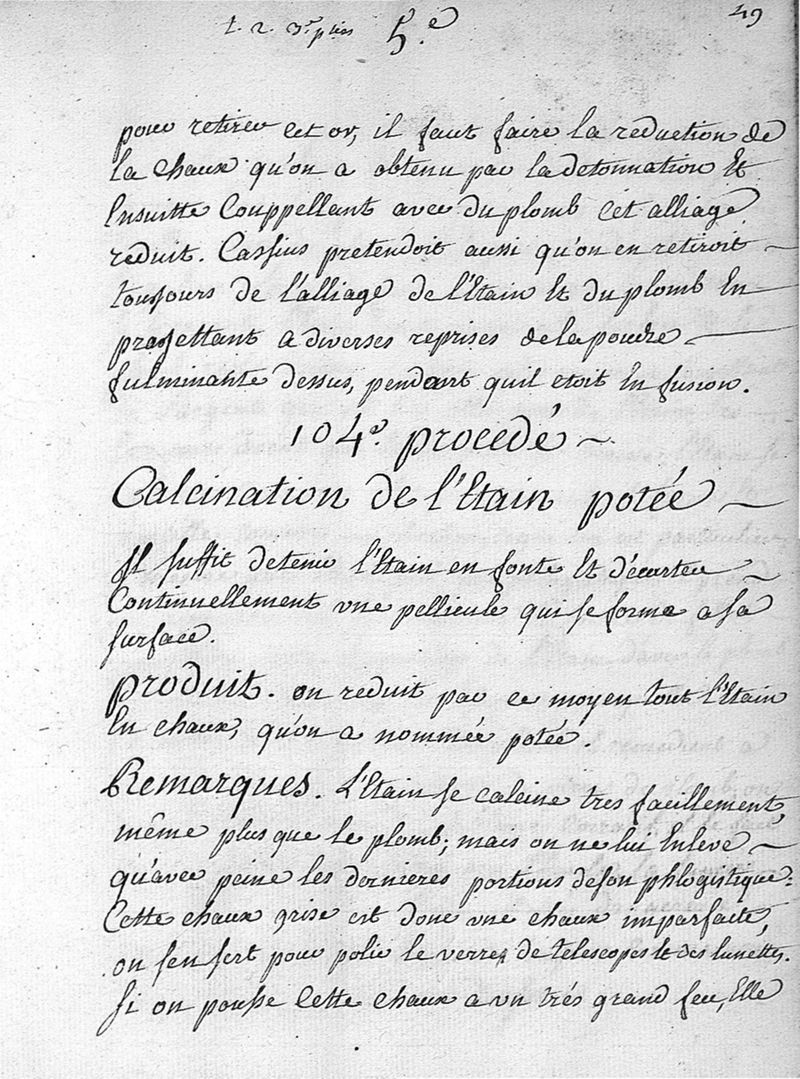 t. 2. 3.e plies 5.e 49
pour retirer cet or, il faut faire la reduction de
la chaux qu'on a obtenu par la detonnation Et
Ensuitte Couppellant avec du plomb Cet alliage
reduit. Cassius pretendoit aussi qu'on en retiroit
toujours de l'alliage de l'Etain Et du plomb En
projettant a diverses reprises de la poudre
fulminante dessus, pendant quil etoit En fusion.
104.e procedé
Calcination de l'Etain potée
Il suffit de tenir l'Etain en fonte Et d'écarter
Continuellement une pellicule qui se forme a sa
surface.
produit. on reduit par ce moyen tout l'Etain
En chaux, qu'on a nommée potée.
Remarques. L'Etain se calcine tres facillement,
même plus que le plomb; mais on ne lui Enleve
qu'avec peine les dernieres portions de son phlogistique:
Cette chaux grise est donc une chaux imparfaite,
on s'en sert pour polir le verre de telescopes Et des lunettes.
Si on pousse Cette chaux a un trés grand feu, Elle